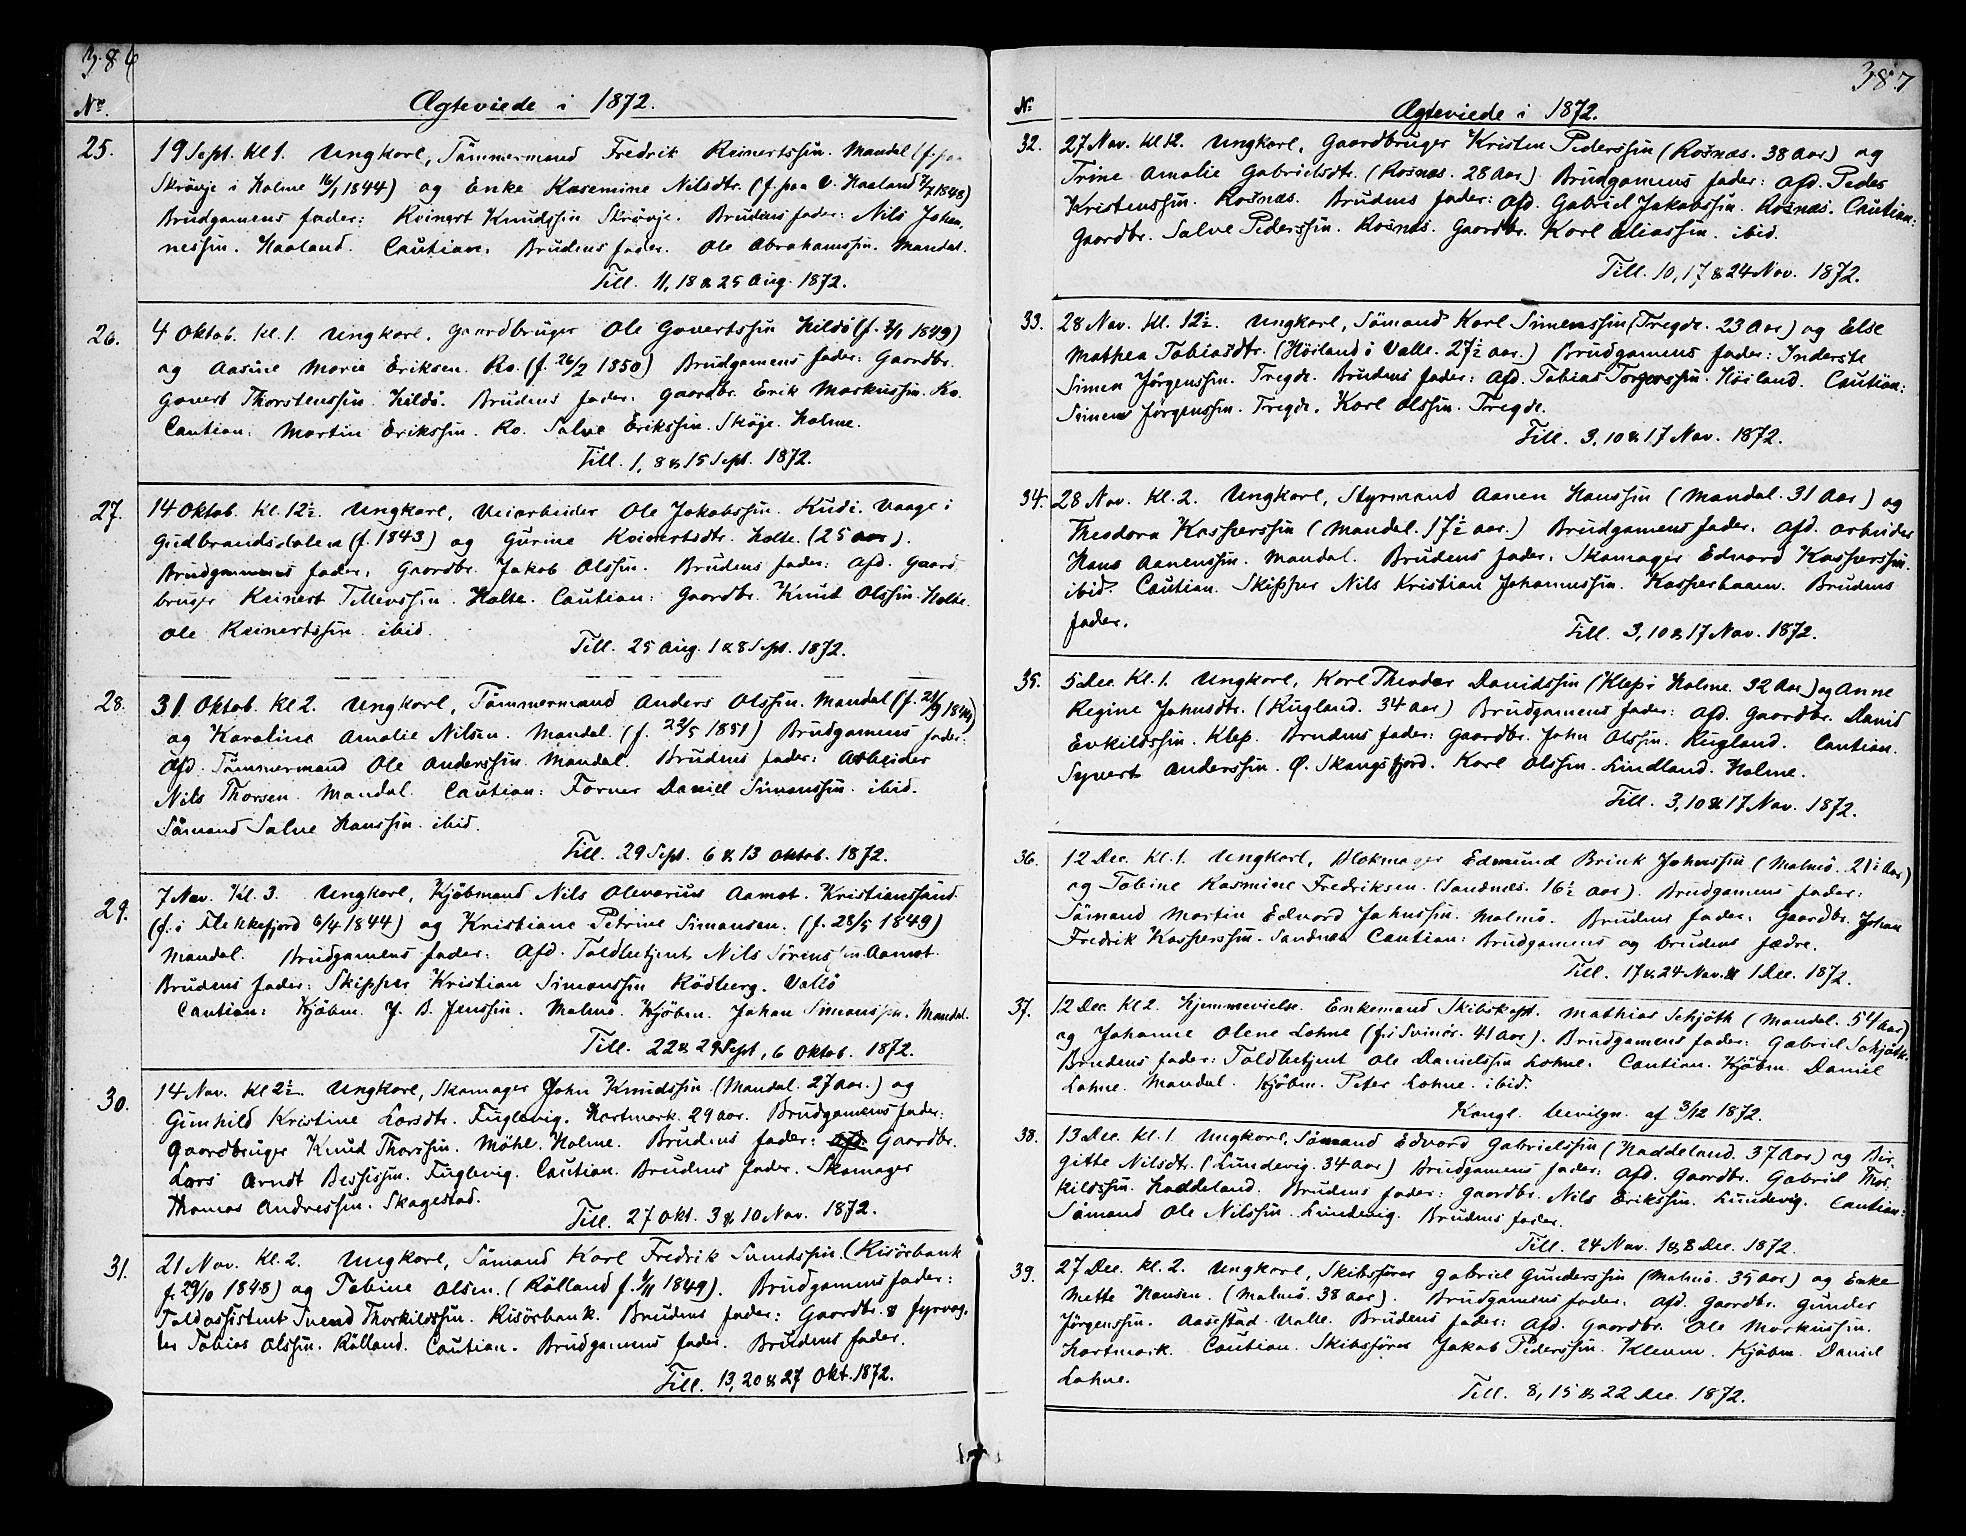 386
No.
Ægteviede i 1872.
25. 19 Sept. Kl 1. Ungkarl, Tømmermand Fredrik Reinertssen. Mandal (f. paa
Skrøvje i Holme 16/1 1844) og Enke Kasemine Nilsdtr. (f. paa V. Haaland 7/7 1848)
Brudgamens fader: Reinert Knudssøn Skrøvje. Brudens fader: Nils Johan,
nessøn. Haaland. Caution: Brudens fader. Ole Abrahamssøn. Mandal.
Till. 11, 18 & 25 Aug. 1872.
26. 4 Oktob. Kl. 1. Ungkarl, Gaardbruger Ole Govertssøn Hildø (f. 3/1 1849)
og Aasine Marie Eriksen. Ro. (f. 26/2 1850) Brudgamens fader: Gaardbr.
Govert Thorstenssøn Hildø. Brudens fader: Gaardbr. Erik Markussøn. Ro.
Caution: Martin Erikssøn. Ro. Salve Erikssøn. Skøje. Holme.
Till. 1, 8 & 15 Sept. 1872.
27. 14 Oktob. Kl. 12½. Ungkarl, Veiarbeider Ole Jakobssøn. Kudi. Vaage i
Gudbrandsdalen (f. 1843) og Gurine Reinertsdtr. Holte. (25 aar).
Brudgamens fader: Gaardbr. Jakob Olssøn. Brudens fader: Afd. Gaard
bruger Reinert Tellevssøn. Holte. Caution: Gaardbr. Knut Olssøn. Holte.
Ole Reinertssøn. ibid.
Till. 25 Aug. 1 & 8 Sept. 1872.
28. 31 Oktob. Kl 2. Ungkarl, Tømmermand Anders Olssøn. Mandal (f. 21/9 1844)
og Karoline Amalie Nilsen. Mandal. (f. 22/5 1851) Brudgamens fader:
Afd. Tømmermand Ole Anderssøn. Mandal. Brudens fader: Arbeider
Nils Thorsen. Mandal. Caution: Former Daniel Simonssøn. ibid.
Sømand Salve Hanssøn. ibid.
Till. 29 Sept. 6 & 13 Oktob. 1872.
29. 7 Nov. Kl. 3. Ungkarl, Kjøbmand Nils Oleverius Aamot. Kristianssund.
(f. i Flekkefjord 6/4 1844) og Kristiane Petrine Simonsen. (f. 28/5 1849)
Mandal. Brudgamens fader: Afd. Toldbetjent Nils Sørenssøn Aamot.
Brudens fader: Skipper Kristian Simonssøn Rødberg. Vallø
Caution: Kjøbm. J. B. Jenssøn. Malmø. Kjøbm. Johan Simonssøn. Mandal.
Till. 22 & 29 Sept, 6 Oktob. 1872.
30. 14 Nov. Kl 2½. Ungkarl, Skomager John Knudssøn (Mandal. 27 aar.) og
Gunhild Kristine Larsdtr. Fuglevig. Hartmark. 29 aar. Brudgamens fader:
Gaardbruger Knud Thorssøn. Møhl. Holme. Brudens fader: Gaardbr.
Lars Arndt Bessissøn. Fuglevig. Caution. Brudens fader. Skomager
Thomas Andressøn. Skagestad.
Till. 27 Okt. 3 & 10 Nov. 1872.
31. 21 Nov. Kl. 2. Ungkarl, Sømand Karl Fredrik Svendssøn. (Risørbank
f. 29/10 1848) og Tobine Olsen. (Rølland f. 9/11 1849). Brudgamens fader:
Toldassistent Svend Thorkildssøn. Risørbank. Brudens fader: Gaardbr. & fyrvog,
ter Tobias Olssøn. Rølland. Caution. Brudgamens fader. Brudens fader.
Till. 13, 20 & 27 Okt. 1872.
387
No
Ægteviede i 1872.
32. 27 Nov. Kl 12. Ungkarl, Gaardbruger Kristen Pederssøn (Rosnæs. 38 aar) og
Trine Amalie Gabrielsdtr. (Rosnæs. 28 aar) Brudgamens fader: Afd. Peder
Kristenssøn. Rosnæs. Brudens fader: Afd. Gabriel Jakobssøn. Rosnæs. Caution:
Gaardbr. Salve Pederssøn. Rosnæs. Gaardbr. Karl Eliassøn. ibid.
Till. 10, 17 & 24 Nov. 1872.
33. 28 Nov. Kl. 12½. Ungkarl, Sømand Karl Simenssøn (Tregde. 23 aar) og Else
Mathea Tobiasdtr. (Høiland i Valle. 27½ aar.) Brudgamens fader: Inderste
Simen Jørgenssøn. Tregde. Brudens fader: Afd. Tobias Torgerssøn. Høiland. Caution:
Simens Jørgenssøn. Tregde. Karl Olssøn. Tregde.
Till. 3, 10 & 17 Nov. 1872.
34. 28 Nov. Kl. 2. Ungkarl, Styrmand Aanen Hanssøn (Mandal. 31 aar) og
Theodora Kasperssøn (Mandal. 17½ aar.) Brudgamens fader: Afd. Arbeider
Hans Aanenssøn. Mandal. Brudens fader: Skomager Edvard Kasperssøn.
ibid. Caution. Skipper Nils Kristian Johannssøn. Kasperbaaen. Brudens
fader.
Till. 3, 10 & 17 Nov. 1872.
35. 5 Dec. Kl. 1. Ungkarl, Karl Theodor Davidssøn (Klep i Holme. 32 aar) og Anne
Regine Johnsdtr. (Rugland. 34 aar) Brudgamens fader: Afd. Gaardbr. David
Evkildssøn. Klep. Brudens fader: Gaardbr. John Olssøn. Rugland. Caution.
Syvert Anderssøn. Ø. Skangsfjord. Karl Olssøn. Lindland. Holme.
Till. 3, 10 & 17 Nov. 1872.
36. 12 Dec. Kl. 1. Ungkarl, Blokmager Edmund Brink Johnssøn (Malmø. 21½ aar)
og Tobine Rasmine Fredriksen. (Sandnæs. 16½ aar). Brudgamens fader:
Sømand Martin Edvard Johnssøn. Malmø. Brudens fader: Gaardbr. Johan
Fredrik Kasperssøn. Sandnæs Caution: Brudgamens og brudens fædre.
Till. 17 & 24 Nov. & 1 Dec. 1872.
37. 12 Dec. Kl 2. Hjemmevielse. Enkemand Skibskapt. Mathias Schjøth (Mandal. 54 aar)
og Johanne Olene Lohne (f. i Svinør. 41 aar). Brudgamens fader: Gabriel Schjøth.
Brudens fader: Toldbetjent Ole Danielssøn Lohne. Caution. Kjøbm. Daniel
Lohne. Mandal. Kjøbm. Peter Lohne. ibid.
Kongl. bevilgn. af 3/12 1872.
38. 13 Dec. Kl. 1 Ungkarl, Sømand Edvard Gabrielssøn (Haddeland. 37 aar) og Bir,
gitte Nilsdtr. (Lundevig. 34 aar) Brudgamens fader: Afd. Gaardbr. Gabriel Thor,
kildssøn. Haddeland. Brudens fader: Gaardbr. Nils Erikssøn. Lundevig. Caution:
Sømand Ole Nilssøn. Lundevig. Brudens fader.
Till. 24 Nov. 1 & 8 Dec. 1872.
39. 27 Dec. Kl. 2. Ungkarl, Skibsfører Gabriel Gunderssøn (Malmø. 35 aar) og Enke
Mette Hansen. (Malmø. 38 aar). Brudgamens fader: Afd. Gaardbr. Gunder
Jørgenssøn. Aasestad. Valle. Brudens fader: Afd. Gaardbr. Ole Markussøn.
Hartmark. Caution. Skibsfører Jakob Pederssøn. Kleven. Kjøbm. Daniel
Lohne.
Till. 8, 15 & 22 Dec. 1872.